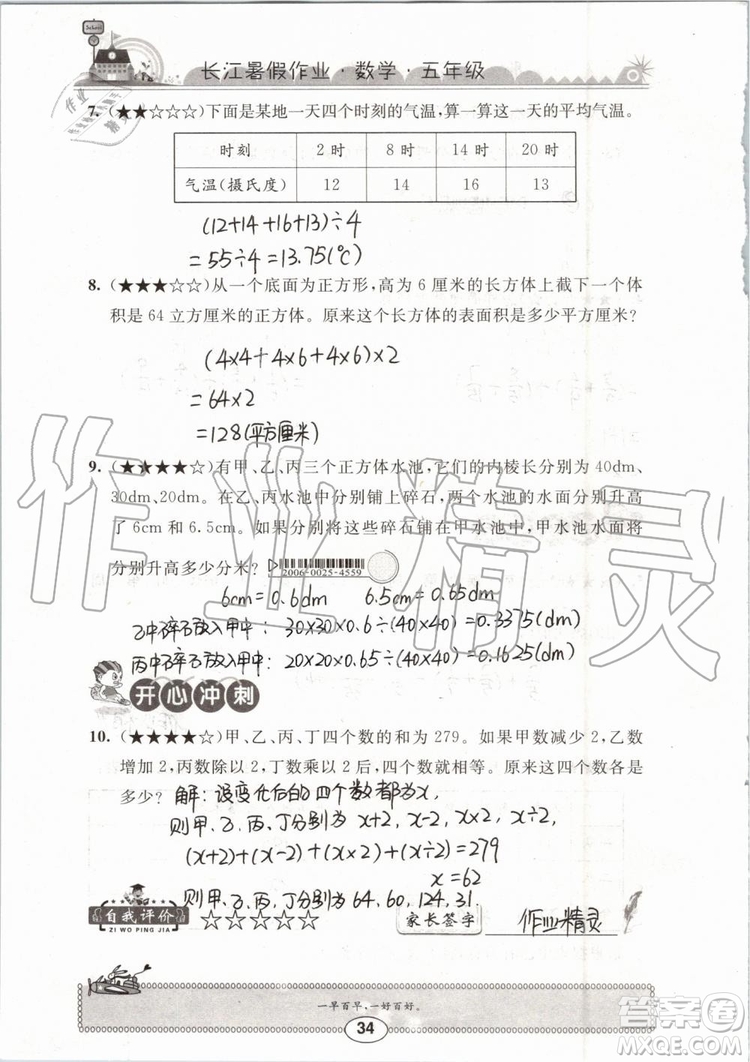 School
长江暑假作业·数学·五年级
7. (★★☆☆☆)下面是某地一天四个时刻的气温,算一算这一天的平均气温。
时刻 2时 8时 14时 20时
气温(摄氏度) 12 14 16 13
(12+14+16+13)÷4
=55÷4=13.75(℃)
8. (★★★☆☆)从一个底面为正方形,高为6厘米的长方体上截下一个体
积是64立方厘米的正方体。原来这个长方体的表面积是多少平方厘米?
(4×4+4×6+4×6)×2
=64×2
=128(平方厘米)
9. (★★★★☆)有甲、乙、丙三个正方体水池,它们的内棱长分别为40dm、
30dm、20dm。在乙、丙水池中分别铺上碎石,两个水池的水面分别升高
了6cm和6.5cm。如果分别将这些碎石铺在甲水池中,甲水池水面将
分别升高多少分米?
2006-0025-4559
6cm=0.6dm 6.5cm=0.65dm
乙中碎石放入甲中: 30×30×0.6÷(40×40)=0.3375(dm)
丙中碎石放入甲中: 20×20×0.65÷(40×40)=0.1625(dm)
开心冲刺
10. (★★★★☆)甲、乙、丙、丁四个数的和为279。如果甲数减少2,乙数
增加2,丙数除以2,丁数乘以2后,四个数就相等。原来这四个数各是
多少?
解:设变化后的四个数都为x,
则甲、乙、丙、丁分别为x+2, x-2, x×2, x÷2
(x+2)+(x-2)+(x×2)+(x÷2)=279
x=62
则甲、乙、丙、丁分别为64, 60, 124, 31.
自我评价 ☆☆☆☆☆
ZI WO PING JIA
家长签字 作业精灵
一早百早、一好百好。
34
作业精灵
答案圈
MXQE.COM